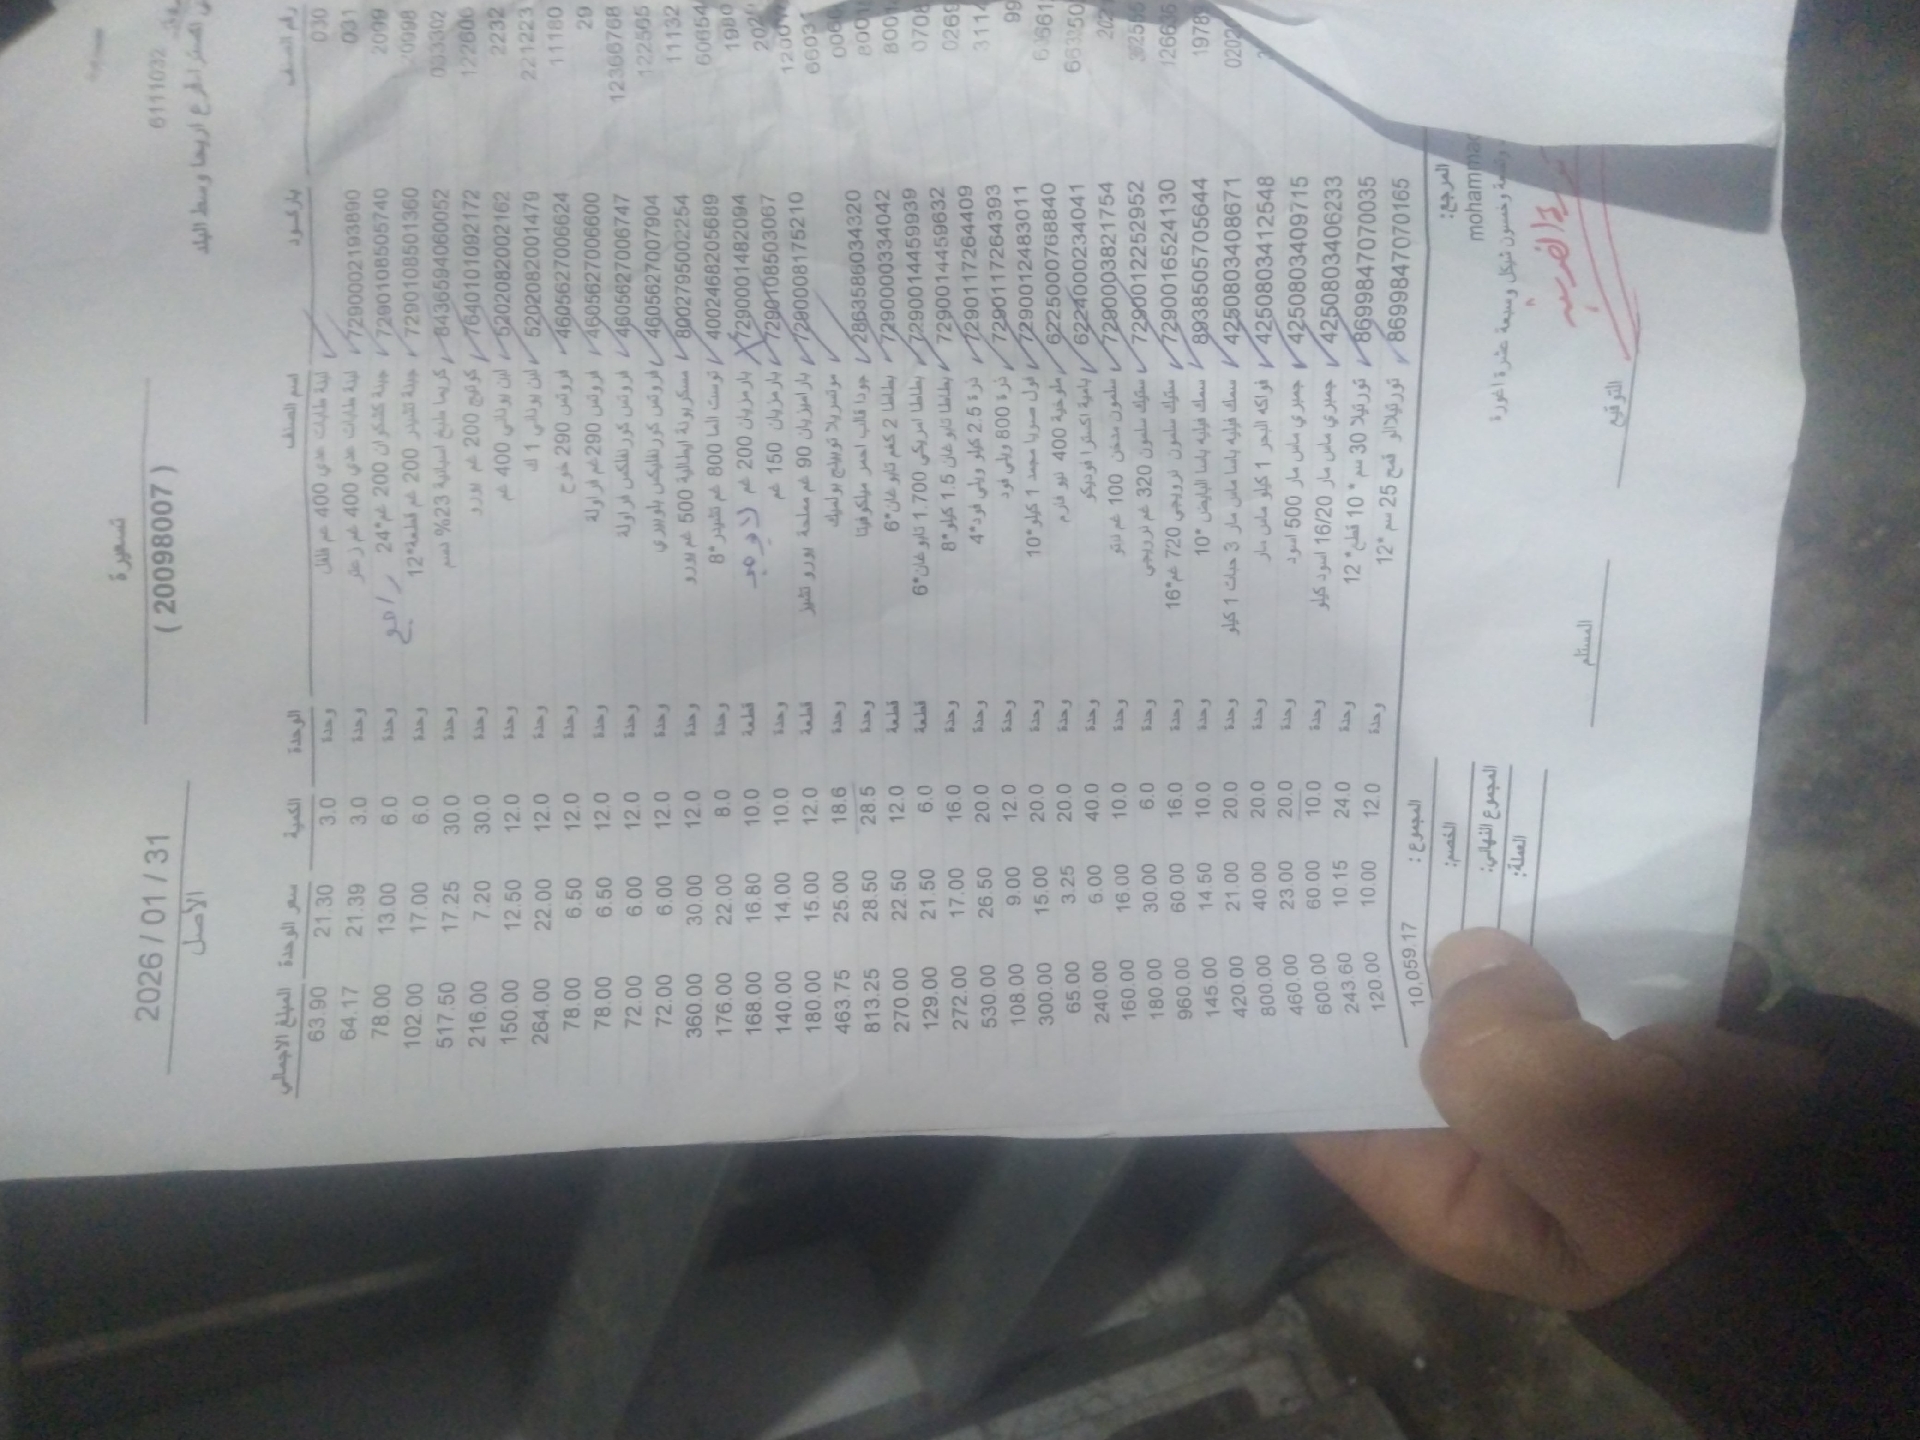 61111032
ي اكسترا فرع اريحا وسط البلد
تسعيرة
( 20098007 )
2026 / 01 / 31
الأصل
رقم الصنف باركود اسم الصنف الوحدة الكمية سعر الوحدة المبلغ الاجمالي
030 7290002193890 لبنة طابات عدي 400 غم فلفل وحدة 3.0 21.30 63.90
031 7290108505740 لبنة طابات عدي 400 غم زعتر وحدة 3.0 21.39 64.17
2099 7290108501360 جبنة كشكوان 200 غم*24 وحدة 6.0 13.00 78.00
20998 8436594060052 جبنة تشيدر 200 غم قطعة*12 وحدة 6.0 17.00 102.00
033302 7640101092172 كريما طبخ اسبانية 23% دسم وحدة 30.0 17.25 517.50
122606 5202082002162 كوتيج 200 غم يورو وحدة 30.0 7.20 216.00
2232 5202082001479 لبن يوناني 400 غم وحدة 12.0 12.50 150.00
221223 4605627006624 لبن يوناني 1 ك وحدة 12.0 22.00 264.00
11180 4605627006600 فروتس 290 خوخ وحدة 12.0 6.50 78.00
29 4605627006747 فروتس 290غم فراولة وحدة 12.0 6.50 78.00
12366768 4605627007904 فروتس كورنفلكس فراولة وحدة 12.0 6.00 72.00
122565 8002795002254 فروتس كورنفليكس بلوبيري وحدة 12.0 6.00 72.00
11132 4002468205689 مسكربونة ايطالية 500 غم يورو وحدة 12.0 30.00 360.00
60654 7290001482094 توست الما 800 غم تشيدر *8 وحدة 8.0 22.00 176.00
1980 7290108503067 بارمزيان 200 غم قطعة 10.0 16.80 168.00
7290008175210 بارمزيان 150 غم وحدة 10.0 14.00 140.00
بارميزيان 90 غم مملحة يورو تشيز قطعة 12.0 15.00 180.00
2863586034320 موتسريلا توبينج بولميك وحدة 18.6 25.00 463.75
7290000334042 جودا قالب احمر ميلكوفيتا وحدة 28.5 28.50 813.25
7290014459939 بطاطا 2 كغم تابوغان*6 قطعة 12.0 22.50 270.00
7290014459632 بطاطا امريكي 1.700 تابوغان*6 قطعة 6.0 21.50 129.00
7290117264409 بطاطا تابوغان 1.5 كيلو*8 وحدة 16.0 17.00 272.00
7290117264393 ذرة 2.5 كيلو ويلي فود*4 وحدة 20.0 26.50 530.00
7290012483011 ذرة 800 ويلي فود وحدة 12.0 9.00 108.00
6225000768840 فول صويا مجمد 1 كيلو*10 وحدة 20.0 15.00 300.00
6224000234041 ملوخية 400 نيو فارم وحدة 20.0 3.25 65.00
7290003821754 بامية اكسترا فودیكو وحدة 40.0 6.00 240.00
7290012252952 سلمون مدخن 100 غم وحدة 10.0 16.00 160.00
7290016524130 ستيك سلمون 320 غم نرويجي وحدة 6.0 30.00 180.00
8938505705644 ستيك سلمون نرويجي 720 غم*16 وحدة 16.0 60.00 960.00
4250803408671 سمك فيليه باسا البايض *10 وحدة 10.0 14.50 145.00
4250803412548 سمك فيليه باسا ماس مار 3 حبات 1 كيلو وحدة 20.0 21.00 420.00
4250803409715 فواكه البحر 1 كيلو ماس مار وحدة 20.0 40.00 800.00
4250803406233 جمبري ماس مار 500 اسود وحدة 20.0 23.00 460.00
8699847070035 جمبري ماس مار 16/20 اسود كيلو وحدة 10.0 60.00 600.00
8699847070165 تورتيلا 30 سم * 10 قطع* 12 وحدة 24.0 10.15 243.60
قمح 25 سم *12 وحدة 12.0 10.00 120.00
المرجع:
mohammad
المجموع : 10,059.17
وتسعة وخمسون شيكل وسبعة عشرة اغورة
الخصم:
المجموع النهائي:
العملة:
المستلم
التوقيع